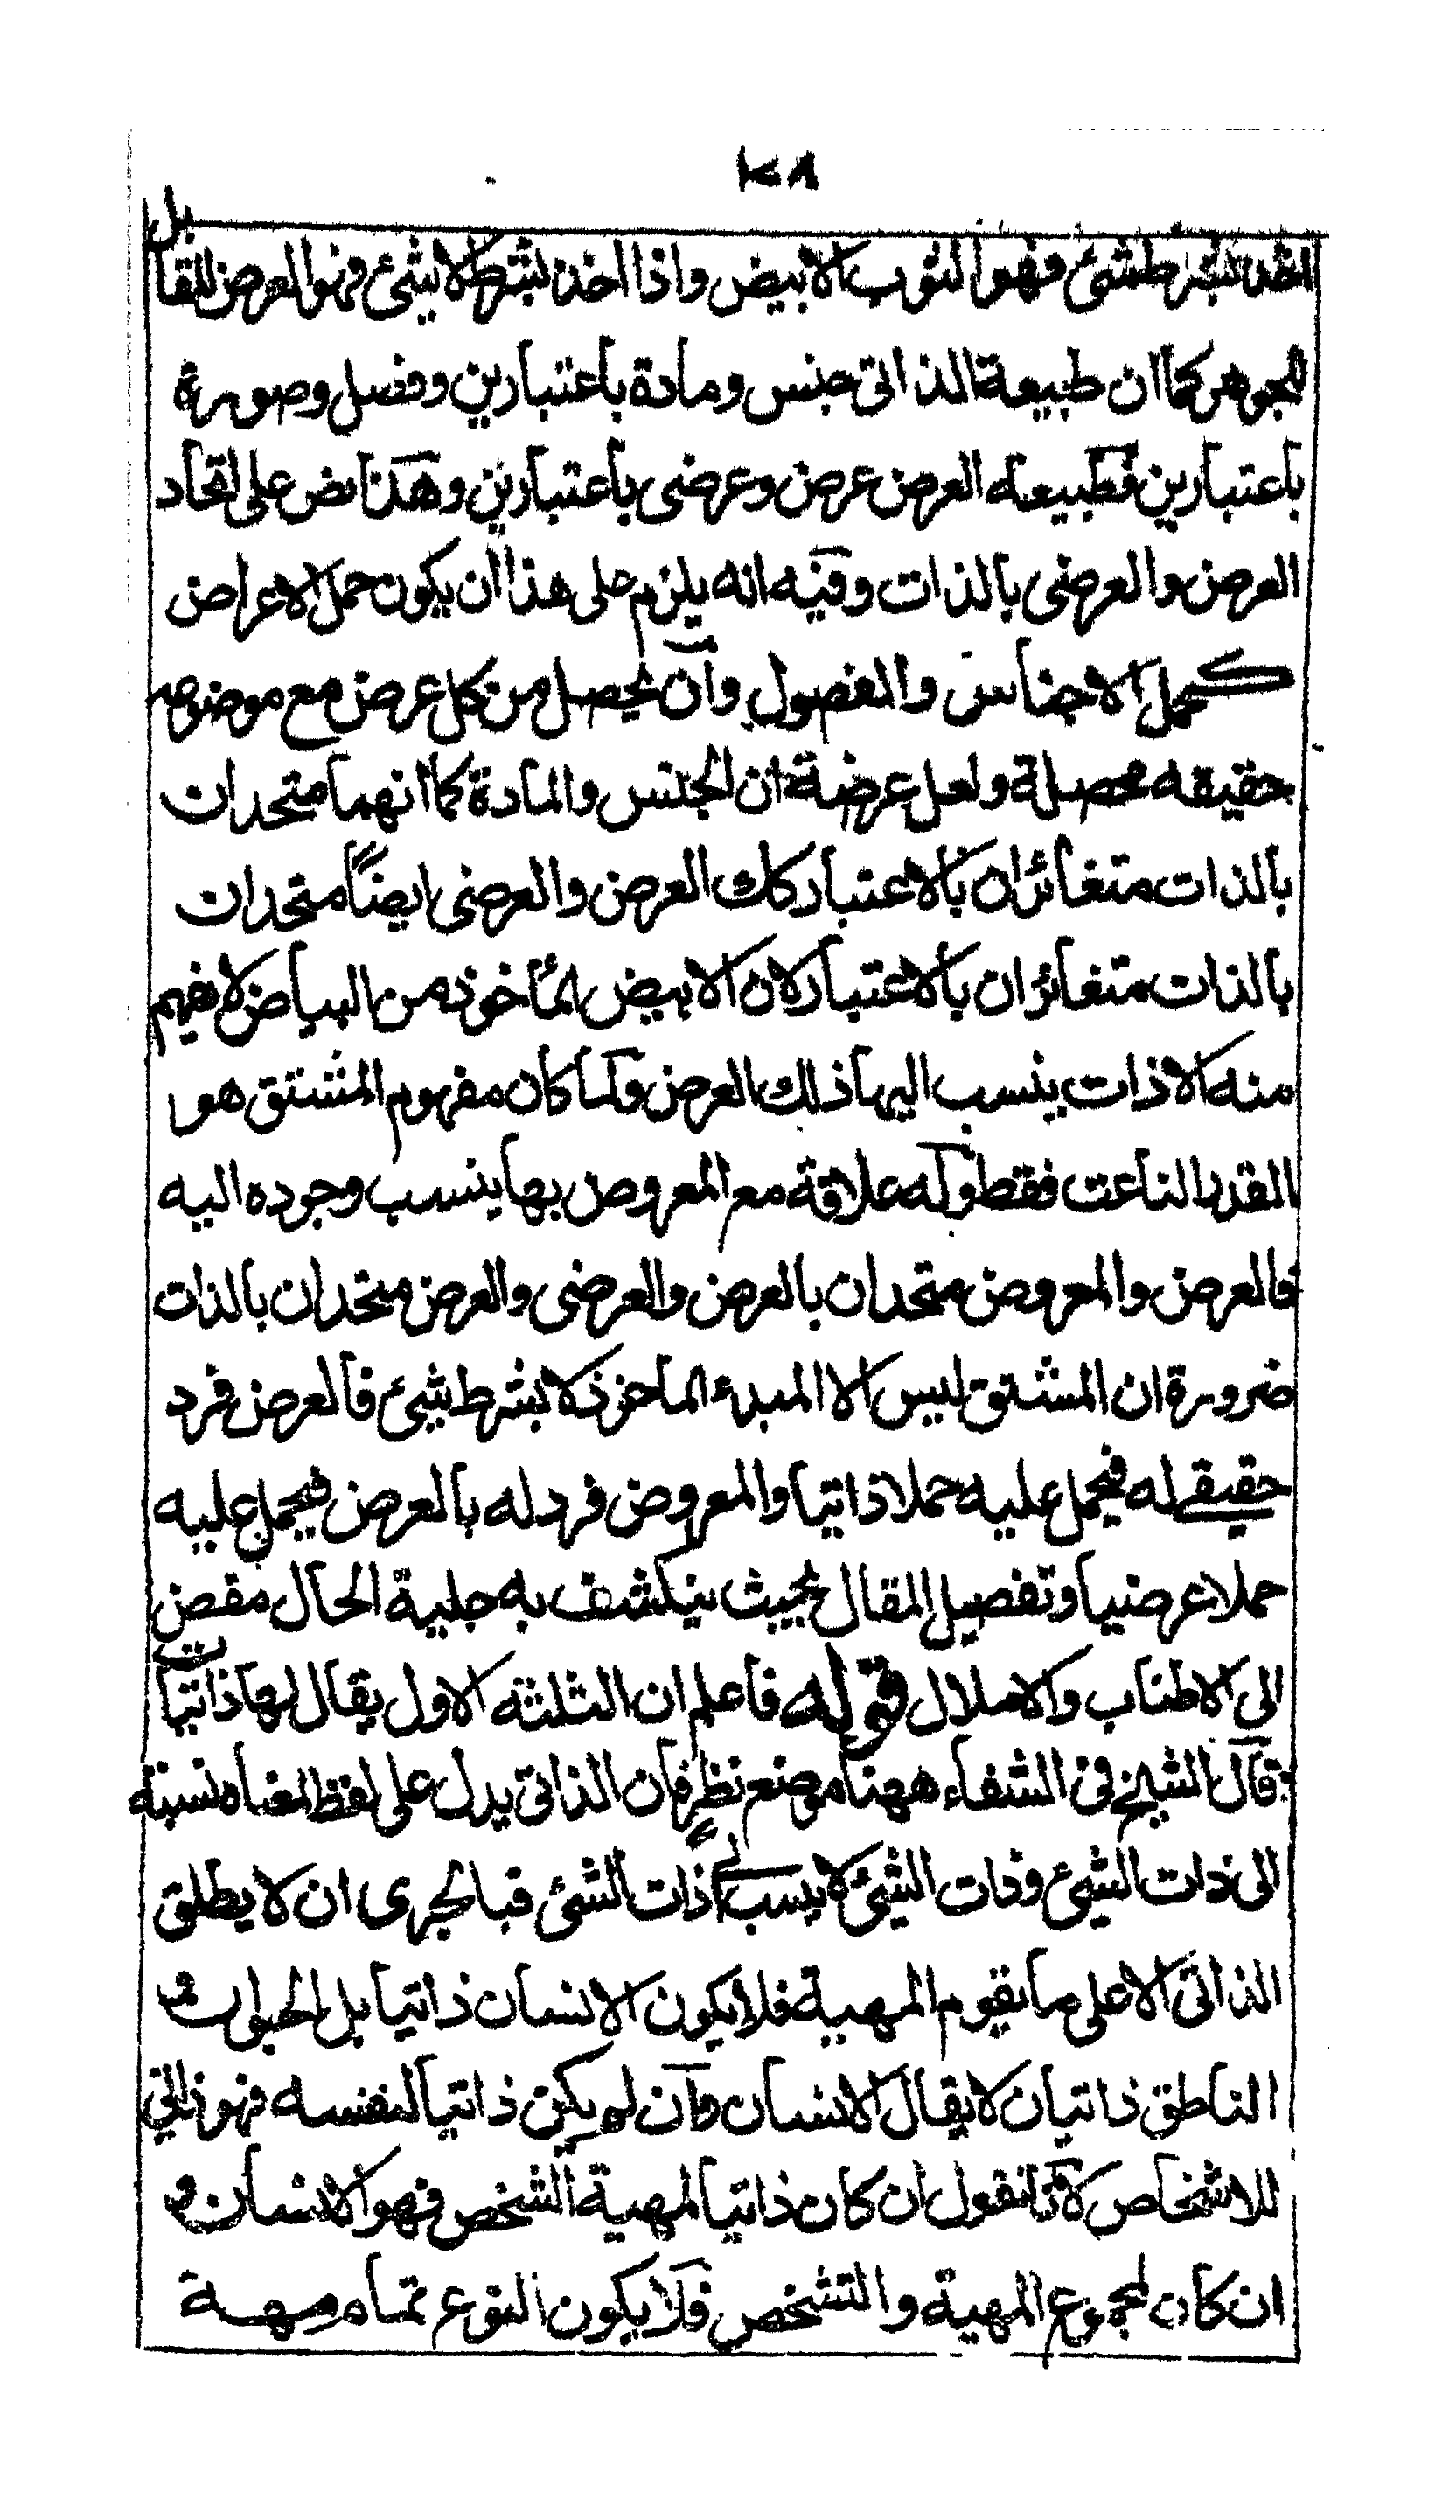 ٢٨
اخذ لابشرط شئ فهو الثوب الابيض واذا اخذ بشرط لا شئ فهو العرض المقابل
للجوهر كما ان طبيعة الذاتى جنس ومادة باعتبارين وفصل وصورة
باعتبارين فطبيعه العرض عرض وعرضى باعتبارين وهذا نص على اتحاد
العرض والعرضى بالذات وفيه انه يلزم على هذا ان يكون حمل الاعراض
كحمل الاجناس والفصول وان يحصل من كل عرض مع موضوعه
حقيقه محصلة ولعل عرضه ان الجنس والمادة كما انهما متحدان
بالذات متغائران بالاعتبار كك العرض والعرضى ايضاً متحدان
بالذات متغائران بالاعتبار لان الابيض المأخوذ من البياض لا يفهم
منه الا ذات ينسب اليها ذلك العرض ولما كان مفهوم المشتق هو
القدر الناعت فقط وله علاقة مع المعروض بها ينسب وجوده اليه
فالعرض والمعروض متحدان بالعرض والعرضى والعرض متحدان بالذات
ضرورة ان المشتق ليس الا المبدء الماخوذ لا بشرط شئ فالعرض فرد
حقيقے له فيحمل عليه حملا ذاتيا والمعروض فرد له بالعرض فيحمل عليه
حملا عرضيا وتفصيل المقال بحيث ينكشف به جلية الحال مفض
الى الاطناب والاملال قوله فاعلم ان الثلثة الاول يقال لها ذاتيات
قال الشيخ فى الشفاء ههنا موضع نظر فان الذاتى يدل على لفظ المعناه نسبة
الى ذات الشئ وذات الشئ لا ينسب الى ذات الشئ فبالحرى ان لا يطلق
الذاتى الا على ما يقوم المهية فلا يكون الانسان ذاتيا بل الحيوان و
الناطق ذاتيان لا يقال الانسان وان لم يكن ذاتيا لنفسه فهو ذاتى
للاشخاص لانا نقول ان كان ذاتيا لمهية الشخص فهو الانسان و
ان كان لمجموع المهية والتشخص فلا يكون النوع تمام مهية